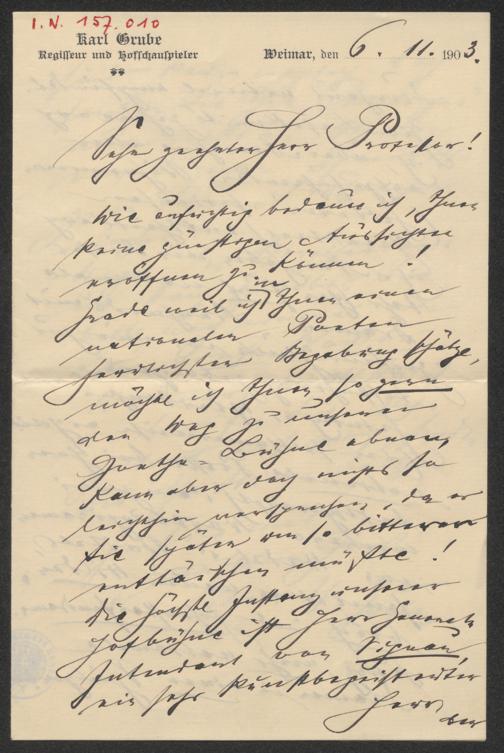 I.N. 157.010
Karl Grube
Regisseur und Hofschauspieler
Weimar, den 6. 11. 1903.
Sehr geehrter Herr Professor!
Wie aufrichtig bedaure ich, Ihnen
keine günstigen Aussichten
eröffnen zu können!
Grade weil ich in Ihnen einen
nationalen Poeten
herrlichster Begabung schätze,
möchte ich Ihnen so gern
den Weg zu unserer
Goethe-Bühne ebnen,
kann aber doch nichts so
leichthin versprechen, da es
Sie später um so bitterer
enttäuschen müßte!
Die höchste Instanz unserer
Hofbühne ist Herr General-
Intendant von Vignau,
ein sehr kunstbegeisterter
Herr